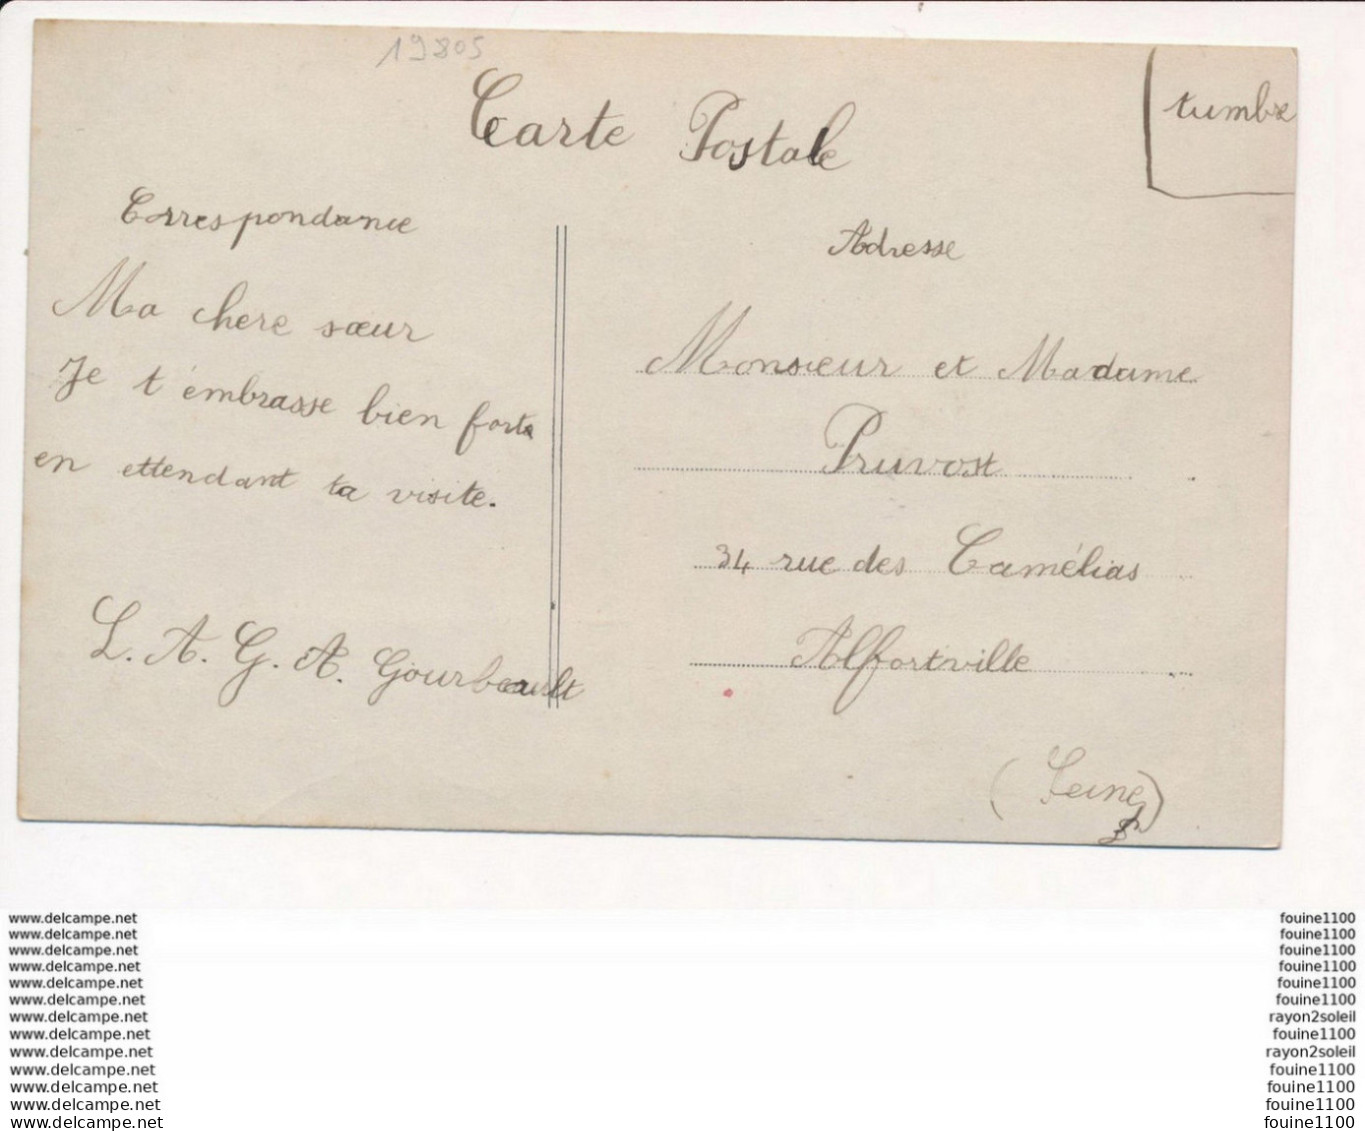 19805
Carte Postale
tumbre
Correspondance
Ma chere sœur
Je t'embrasse bien forte
en ettendant ta visite.
L. A. G. A. Gourbeault
Adresse
Monsieur et Madame
Pruvost
34 rue des Camélias
Alfortville
(Seine)
www.delcampe.net
www.delcampe.net
www.delcampe.net
www.delcampe.net
www.delcampe.net
www.delcampe.net
www.delcampe.net
www.delcampe.net
www.delcampe.net
www.delcampe.net
www.delcampe.net
www.delcampe.net
www.delcampe.net
fouine1100
fouine1100
fouine1100
fouine1100
fouine1100
fouine1100
rayon2soleil
fouine1100
rayon2soleil
fouine1100
fouine1100
fouine1100
fouine1100